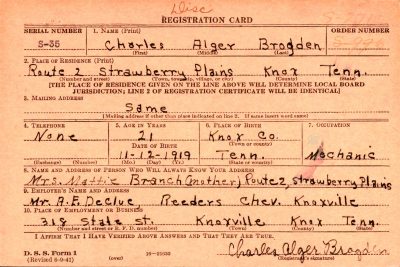 Disc
REGISTRATION CARD
SERIAL NUMBER 1. NAME (Print) ORDER NUMBER
S-35 Charles Alger Brogden
(First) (Middle) (Last)
2. PLACE OF RESIDENCE (Print)
Route 2 Strawberry Plains Knox Tenn.
(Number and street) (Town, township, village, or city) (County) (State)
[THE PLACE OF RESIDENCE GIVEN ON THE LINE ABOVE WILL DETERMINE LOCAL BOARD
JURISDICTION; LINE 2 OF REGISTRATION CERTIFICATE WILL BE IDENTICAL]
3. MAILING ADDRESS
Same
[Mailing address if other than place indicated on line 2. If same insert word same]
4. TELEPHONE 5. AGE IN YEARS 6. PLACE OF BIRTH 7. OCCUPATION
None 21 Knox Co.
DATE OF BIRTH (Town or county)
11-12-1919 Tenn. Mechanic
(Exchange) (Number) (Mo.) (Day) (Yr.) (State or country)
8. NAME AND ADDRESS OF PERSON WHO WILL ALWAYS KNOW YOUR ADDRESS
Mrs. Mattie Branch (mother) Route 2, Strawberry Plains
9. EMPLOYER'S NAME AND ADDRESS
Mr. A.E. DeClue Reeders Chev. Knoxville
10. PLACE OF EMPLOYMENT OR BUSINESS
318 State St. Knoxville Knox Tenn.
(Number and street or R. F. D. number) (Town) (County) (State)
I AFFIRM THAT I HAVE VERIFIED ABOVE ANSWERS AND THAT THEY ARE TRUE.
D. S. S. Form 1 Charles Alger Brogden
(Revised 6-9-41) (over) (Registrant's signature)